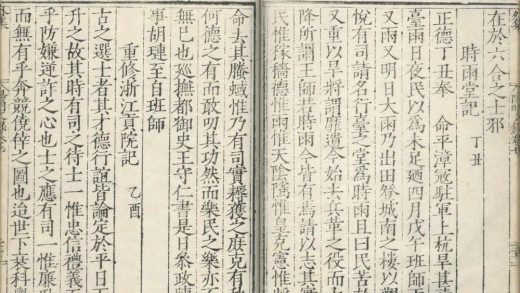 在於六合之上邪
時雨堂記 丁丑
正德丁丑奉 命平漳寇駐軍上杭旱甚
臺雨日夜民以爲未足廼四月戊午班師
又雨又明日大雨乃出田登城南之樓以觀
悅有司請名行臺之堂爲時雨且曰民苦
又重以旱將謂靡遺今始去兵革之役而大
降所謂王師若時雨今皆有焉請以志其實
民惟稼穡德惟雨惟天陰隲惟皇克憲惟將
命去其螣蜮惟乃有司實耨獲之庶克有秋
何德之有而敢叨其功然而樂民之樂亦
無巳也巡撫都御史王守仁書是日參政陳
事胡璉至自班師
重修浙江貢院記 乙酉
古之選士者其才德行誼皆論定於平日
升之故其時有司之待士一惟忠信禮義
乎防嫌逆詐之心也士之應有司一惟廉
而無有乎奔競僥倖之圖也迨世下衰科